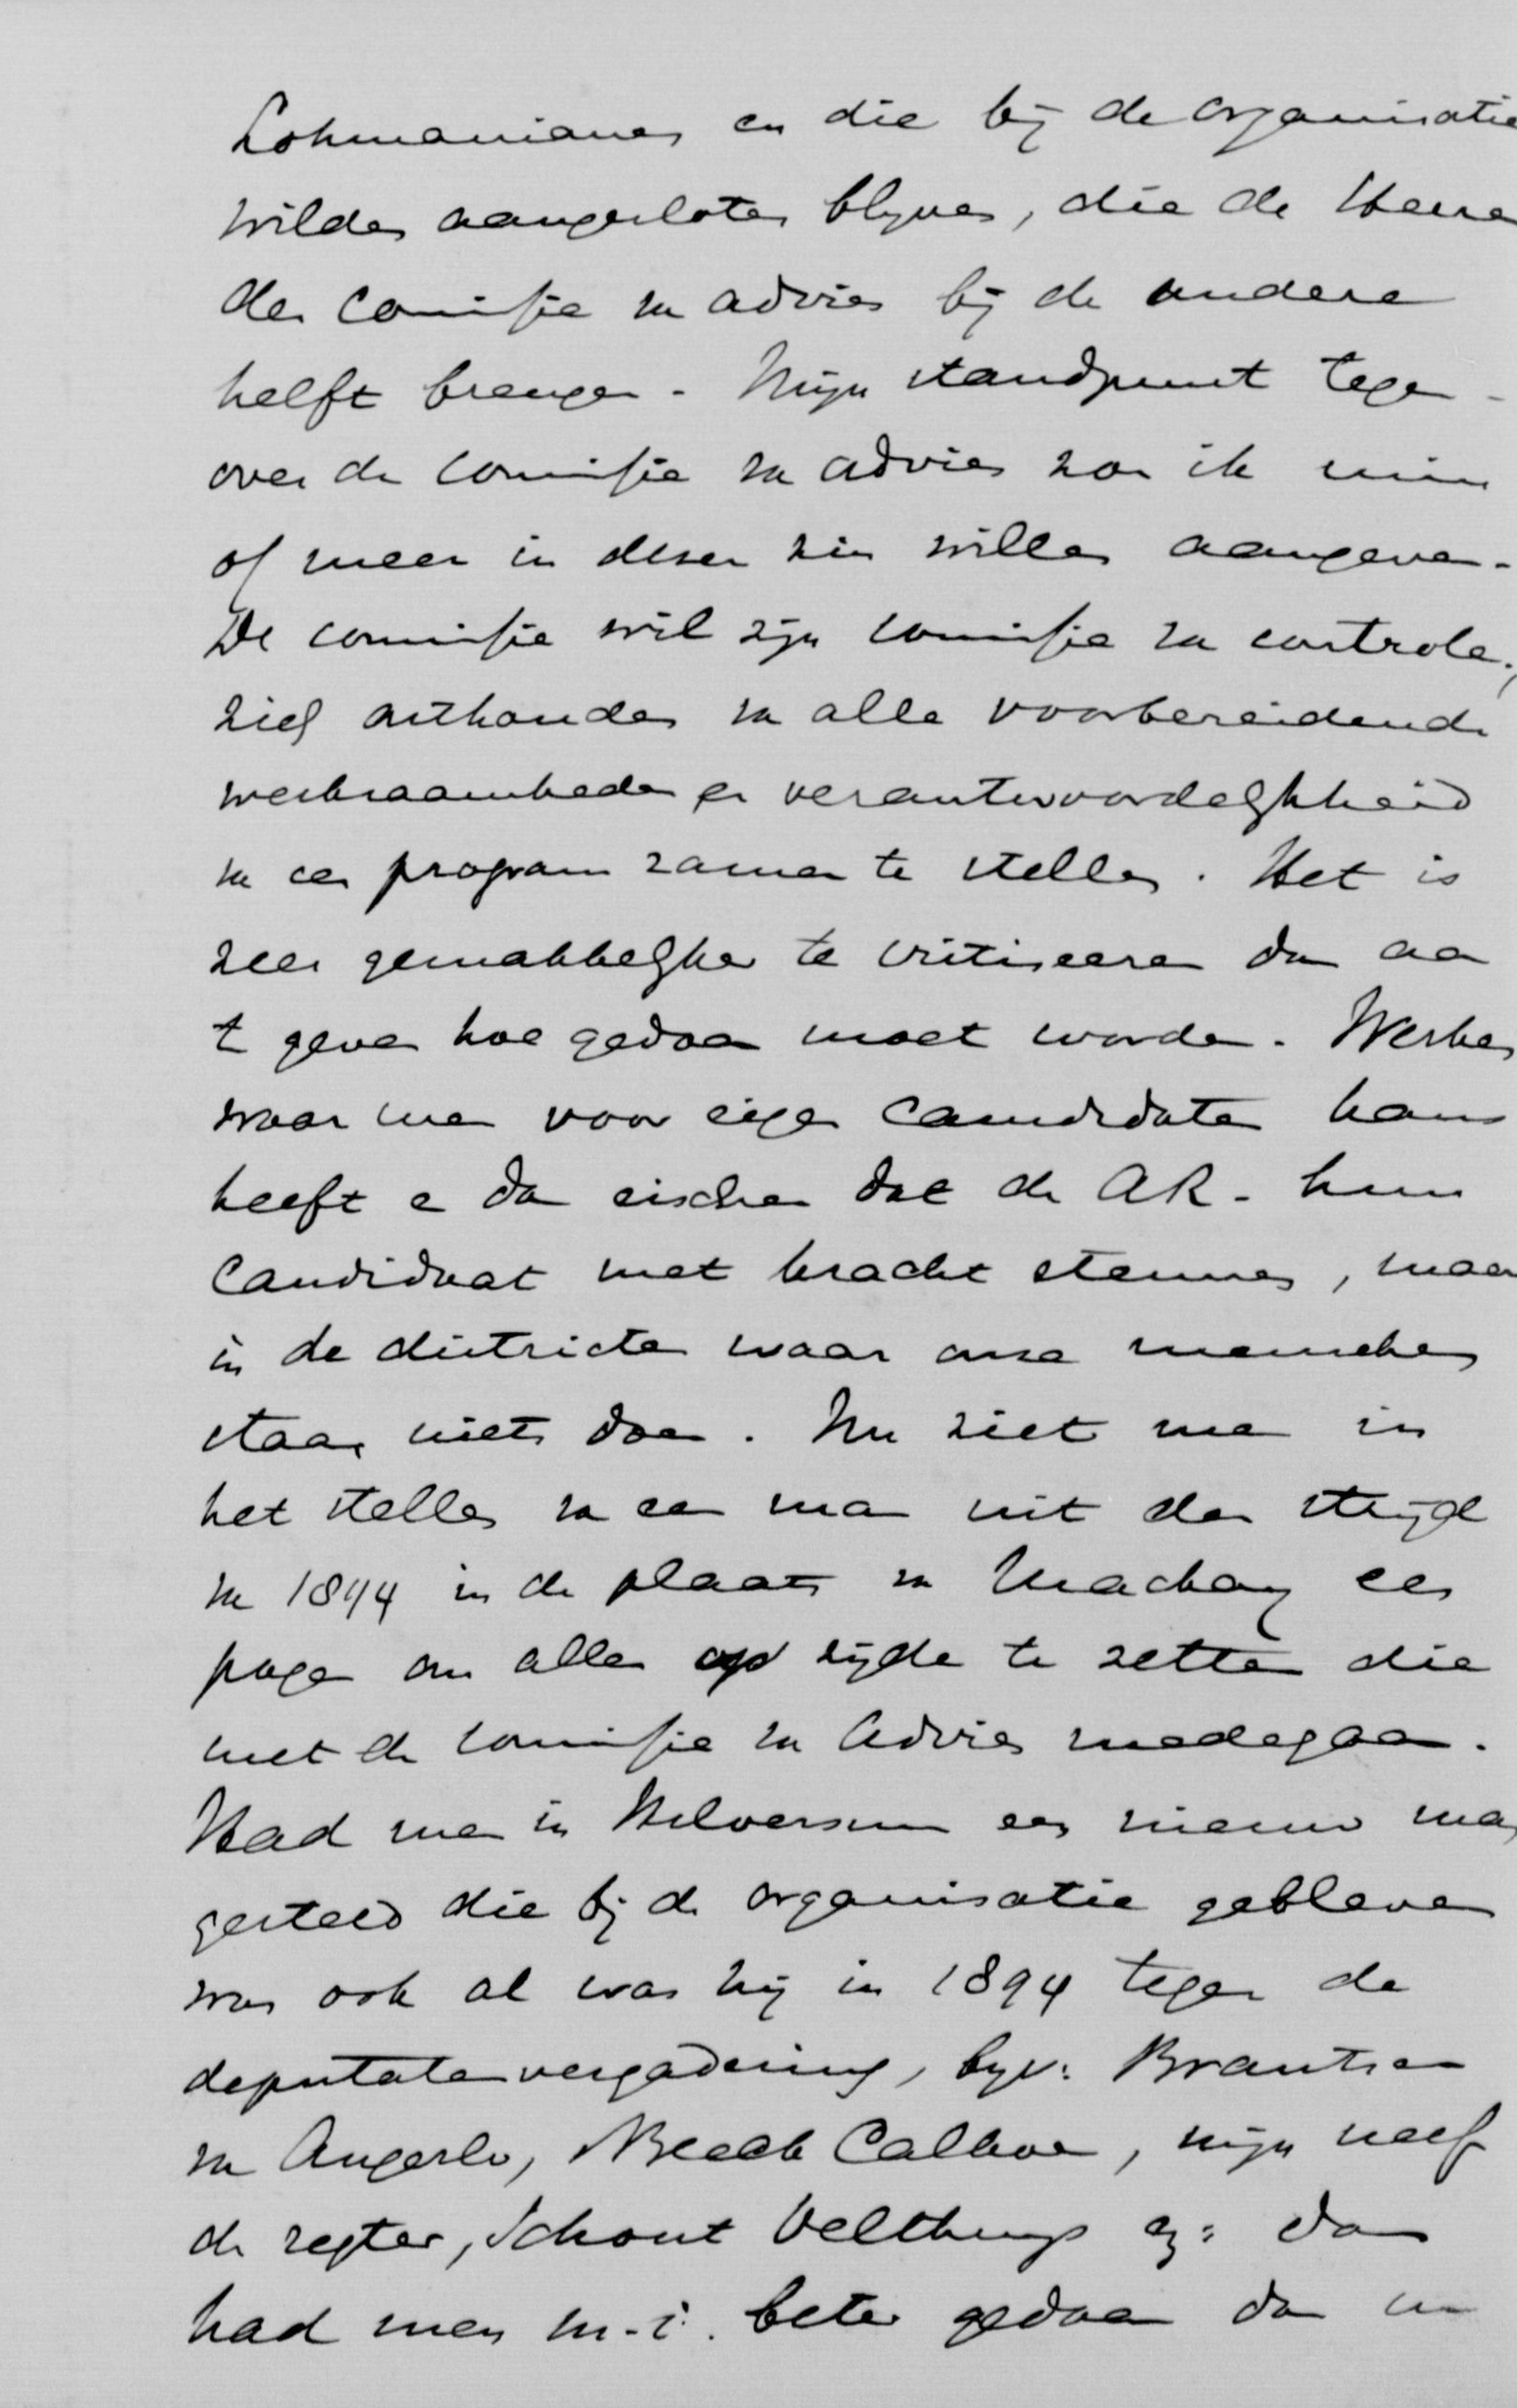 Lohmanianen en die bij de organisatie
wilden aangesloten blijven, die de Heeren
der Comissie van advies bij de andere
helft brengen. Mijn standpunt tegen-
over de Comissie van advies zou ik min
of meer in dezen zin willen aangeven.
De comissie wil zijn comissie van controle,
zich onthouden van alle voorbereidende
werkzaamheden en verantwoordelijkheid
van een program zamen te stellen. Het is
zeer gemakkelijker te critiseeren dan aan
te geven hoe gedaan moet worden. Werken
waar men voor eigen candidaten kans
heeft en dan eischen dat de AR. hun
Candidaat met kracht steunen, maar
in de districten waar onze menschen
staan niets doen. Nu ziet men in
het stellen van een man uit den strijd
van 1894 in de plaats van Mackay een
pogen om allen op zijde te zetten die
met de Comissie van Advies medegaan.
Had men in Hilversum een nieuw man
gesteld die bij de organisatie gebleven
was ook al was hij in 1894 tegen de
deputatenvergadering, bijv: Brantsen
van Angerlo, Bleeck Calkoen, mijn neef
de regter, Schout Velthuys ez: dan
had men m.i. beter gedaan dan